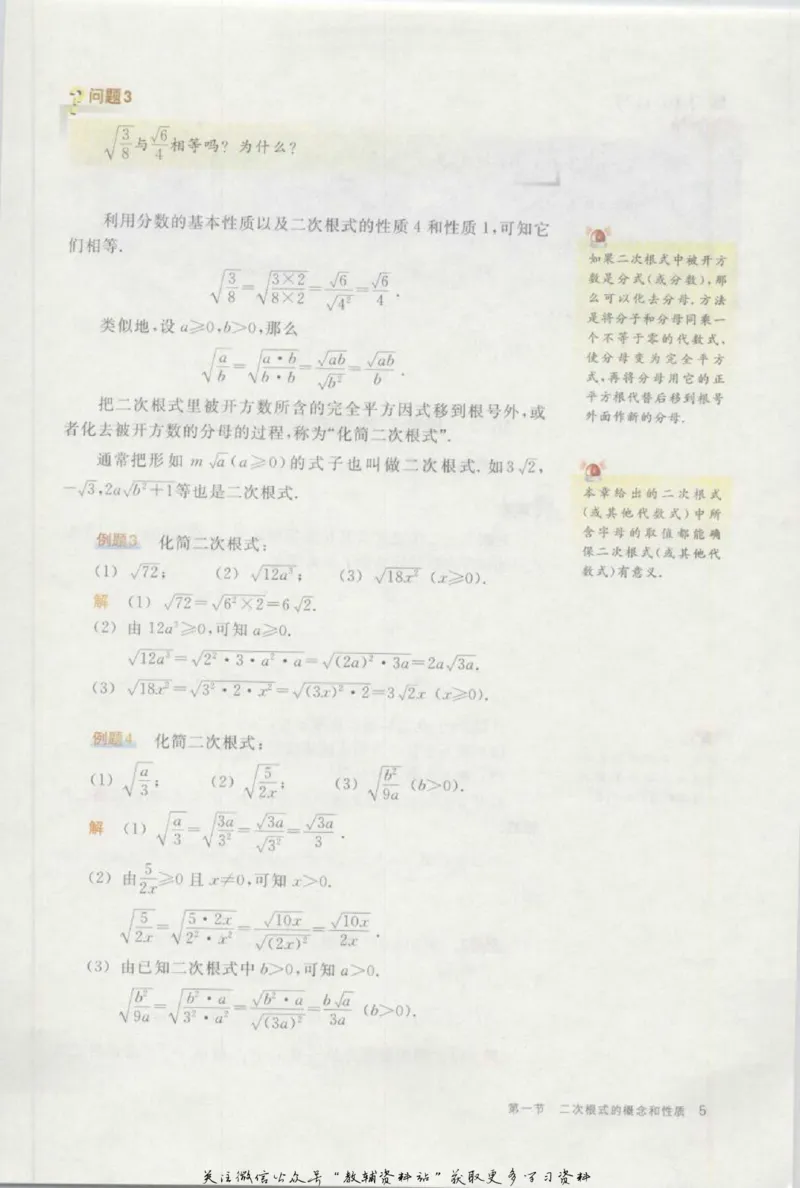 问题3
√(3/8)与√6/4相等吗？为什么？
利用分数的基本性质以及二次根式的性质4和性质1,可知它
们相等.
√(3/8)=√((3×2)/(8×2))=√6/√(4²)=√6/4.
类似地,设a≥0,b>0,那么
√(a/b)=√((a·b)/(b·b))=√(ab)/√(b²)=√(ab)/b.
把二次根式里被开方数所含的完全平方因式移到根号外,或
者化去被开方数的分母的过程,称为“化简二次根式”.
通常把形如 m√a(a≥0)的式子也叫做二次根式.如3√2,
-√3,2a√(b²+1)等也是二次根式.
如果二次根式中被开方
数是分式(或分数),那
么可以化去分母.方法
是将分子和分母同乘一
个不等于零的代数式,
使分母变为完全平方
式,再将分母用它的正
平方根代替后移到根号
外面作新的分母.
本章给出的二次根式
(或其他代数式)中所
含字母的取值都能确
保二次根式(或其他代
数式)有意义.
例题3 化简二次根式:
(1) √72; (2) √(12a³); (3) √(18x²) (x≥0).
解 (1) √72=√(6²×2)=6√2.
(2) 由12a³≥0,可知a≥0.
√(12a³)=√(2²·3·a²·a)=√((2a)²·3a)=2a√(3a).
(3) √(18x²)=√(3²·2·x²)=√((3x)²·2)=3√2x (x≥0).
例题4 化简二次根式:
(1) √(a/3); (2) √(5/(2x)); (3) √(b²/(9a)) (b>0).
解 (1) √(a/3)=√(3a/3²)=√(3a)/√(3²)=√(3a)/3.
(2) 由5/(2x)≥0且x≠0,可知x>0.
√(5/(2x))=√((5·2x)/(2²·x²))=√(10x)/√((2x)²)=√(10x)/(2x).
(3) 由已知二次根式中b>0,可知a>0.
√(b²/(9a))=√((b²·a)/(3²·a²))=√(b²·a)/√((3a)²)=b√a/(3a) (b>0).
第一节 二次根式的概念和性质 5
关注微信公众号“教辅资料站”获取更多学习资料